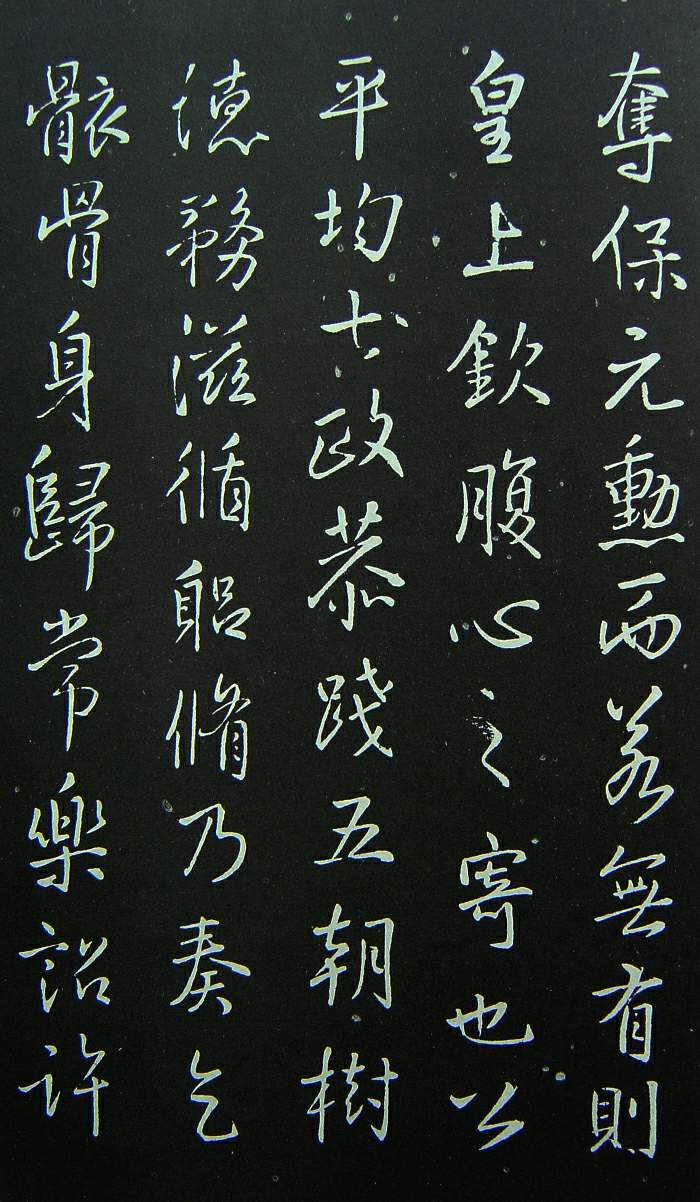 奪保元勳而若無有則
皇上欽腹心之寄也公
平均政恭踐五朝樹
德務滋循躳脩乃奏乞
骸骨身歸常樂詔許